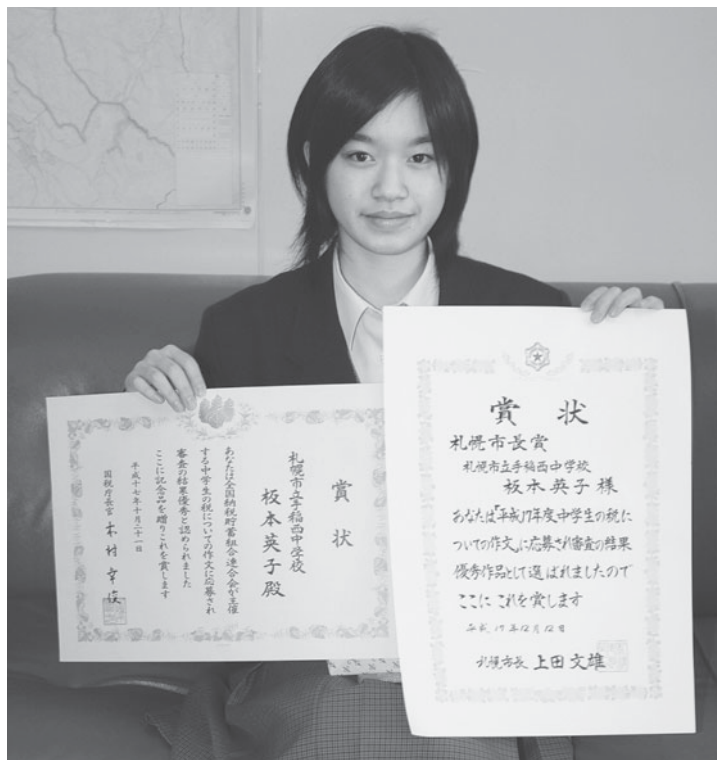 賞状
札幌市立手稲西中学校
板本英子殿
あなたは全国納税貯蓄組合連合会が主催
する中学生の税についての作文に応募され
審査の結果優秀と認められました
ここに記念品を贈りこれを賞します
平成十七年十月二十一日
国税庁長官 木村幸俊
賞状
札幌市長賞
札幌市立手稲西中学校
板本英子様
あなたは「平成17年度中学生の税に
ついての作文」に応募され審査の結果
優秀作品として選ばれましたので
ここにこれを賞します
平成17年12月12日
札幌市長 上田文雄